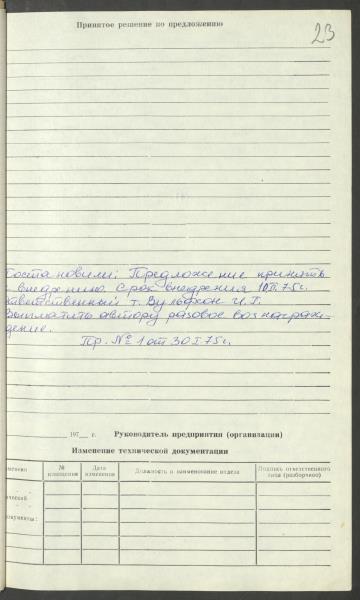 Принятое решение по предложению
23
Постановили: Предложение принять
внедрению. Срок внедрения 10.II.75г.
ответственный т. Вульфсон И.Г.
Выплатить автору разовое вознаграж-
дение.
Пр. № 1 от 30.I.75г.
197 г. Руководитель предприятия (организации)
Изменение технической документации
№ извещения
Дата изменения
Должность и наименование отдела
Подпись ответственного лица (разборчиво)
менения
ической
документы: